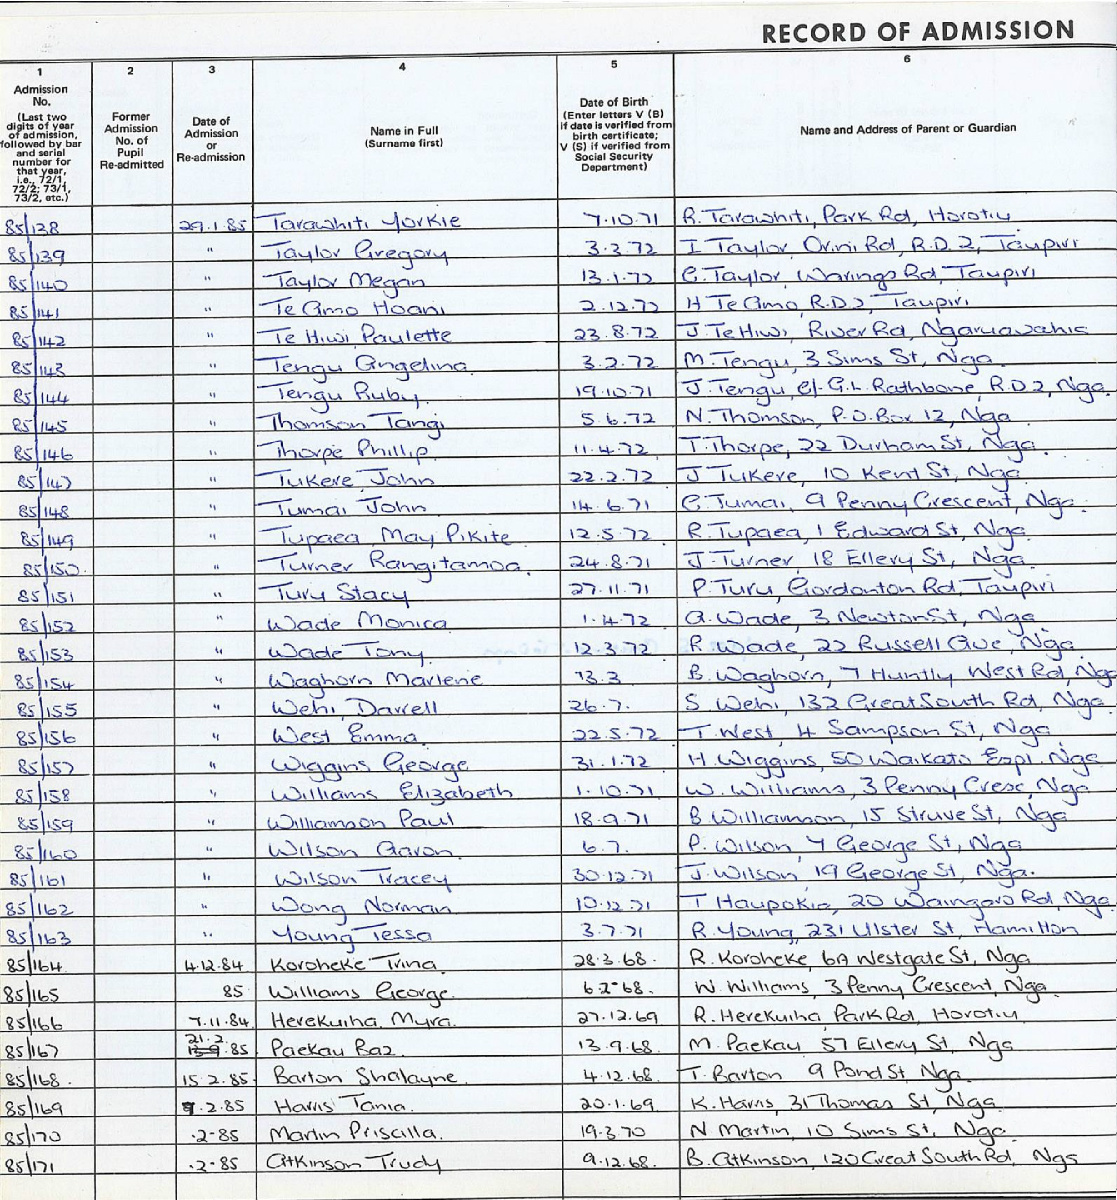 RECORD OF ADMISSION
1 2 3 4 5 6
Admission No. (Last two digits of year of admission, followed by bar and serial number for that year, i.e., 72/1, 72/2; 73/1, 73/2, etc.) Former Admission No. of Pupil Re-admitted Date of Admission or Re-admission Name in Full (Surname first) Date of Birth (Enter letters V (B) if date is verified from birth certificate; V (S) if verified from Social Security Department) Name and Address of Parent or Guardian
85/138 29.1.85 Tarawhiti Yorkie 7.10.71 R. Tarawhiti, Park Rd, Horotiu
85/139 " Taylor Gregory 3.3.72 I Taylor Orini Rd, R.D.2, Taupiri
85/140 " Taylor Megan 13.1.72 C. Taylor, Warings Rd, Taupiri
85/141 " Te Amo Hoani 2.12.72 H Te Amo, R.D.2, Taupiri
85/142 " Te Hiwi Paulette 23.8.72 J. Te Hiwi, River Rd, Ngaruawahia
85/143 " Tengu Angelina 3.2.72 M. Tengu, 3 Sims St, Nga
85/144 " Tengu Ruby 19.10.71 J. Tengu, c/- G.L. Rathbone, R.D.2, Nga.
85/145 " Thomson Tangi 5.6.72 N. Thomson, P.O. Box 12, Nga
85/146 " Thorpe Phillip 11.4.72 T. Thorpe, 22 Durham St, Nga.
85/147 " Tukere John 22.2.72 J Tukere, 10 Kent St, Nga
85/148 " Tumai John 14.6.71 C. Tumai, 9 Penny Crescent, Nga.
85/149 " Tupaea, May Pikite 12.5.72 R. Tupaea, 1 Edward St, Nga
85/150 " Turner Rangitamoa. 24.8.71 J. Turner, 18 Ellery St, Nga.
85/151 " Turu Stacy 27.11.71 P. Turu, Gordonton Rd, Taupiri
85/152 " Wade Monica 1.4.72 A. Wade, 3 Newton St, Nga
85/153 " Wade Tony 12.3.72 R Wade, 22 Russell Ave, Nga.
85/154 " Waghorn Marlene 13.3 B. Waghorn, 7 Huntly West Rd, Nga
85/155 " Wehi, Darrell 26.7. S Wehi, 132 Great South Rd, Nga.
85/156 " West Emma 22.5.72 T. West, 4 Sampson St, Nga
85/157 " Wiggins George 31.1.72 H. Wiggins, 50 Waikato Espl, Nga
85/158 " Williams Elizabeth 1.10.71 W. Williams, 3 Penny Cresc, Nga
85/159 " Williamson Paul 18.9.71 B. Williamson, 15 Struve St, Nga
85/160 " Wilson Aaron. 6.7. P. Wilson, 7 George St, Nga
85/161 " Wilson Tracey 30.12.71 J. Wilson 19 George St, Nga.
85/162 " Wong Norman. 10.12.71 T Haupokia, 20 Waingaro Rd, Nga
85/163 " Young Tessa 3.7.71 R. Young, 231 Ulster St, Hamilton
85/164. 4.12.84 Koroheke Trina 28.3.68. R. Koroheke, 6A Westgate St, Nga
85/165 85 Williams George. 6.2.68. W. Williams, 3 Penny Crescent, Nga.
85/166 7.11.84. Herekuiha, Myra. 27.12.69 R. Herekuiha Park Rd, Horotiu
85/167 21.2.85 Paekau Baz. 13.9.68. M. Paekau 57 Ellery St, Nga
85/168. 15.2.85 Barton Shalayne. 4.12.68. T. Barton 9 Pond St Nga.
85/169 .2.85 Harris Tania. 20.1.69. K. Harris, 31 Thomas St, Nga.
85/170 .2-85 Martin Priscilla. 19.3.70 N Martin, 10 Sims St, Nga.
85/171 .2-85 Atkinson Trudy 9.12.68. B. Atkinson, 120 Great South Rd, Nga